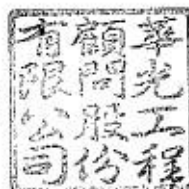 華光工程
顧問股份
有限公司